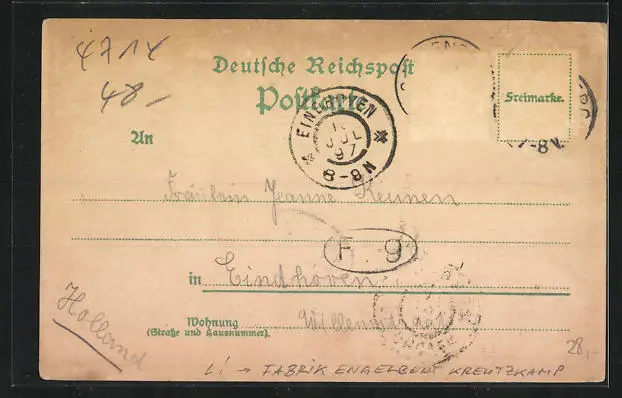 4714
48,-
Deutsche Reichspost
Postkarte
Freimarke.
EINDHOVEN
JUL
97
8-8N
7-8V
An
Fräulein Jeanne Keunen
F. 9
in Eindhoven
Holland
Wohnung
(Straße und Hausnummer).
28,-
LI → FABRIK ENGELBERT KREUTZKAMP